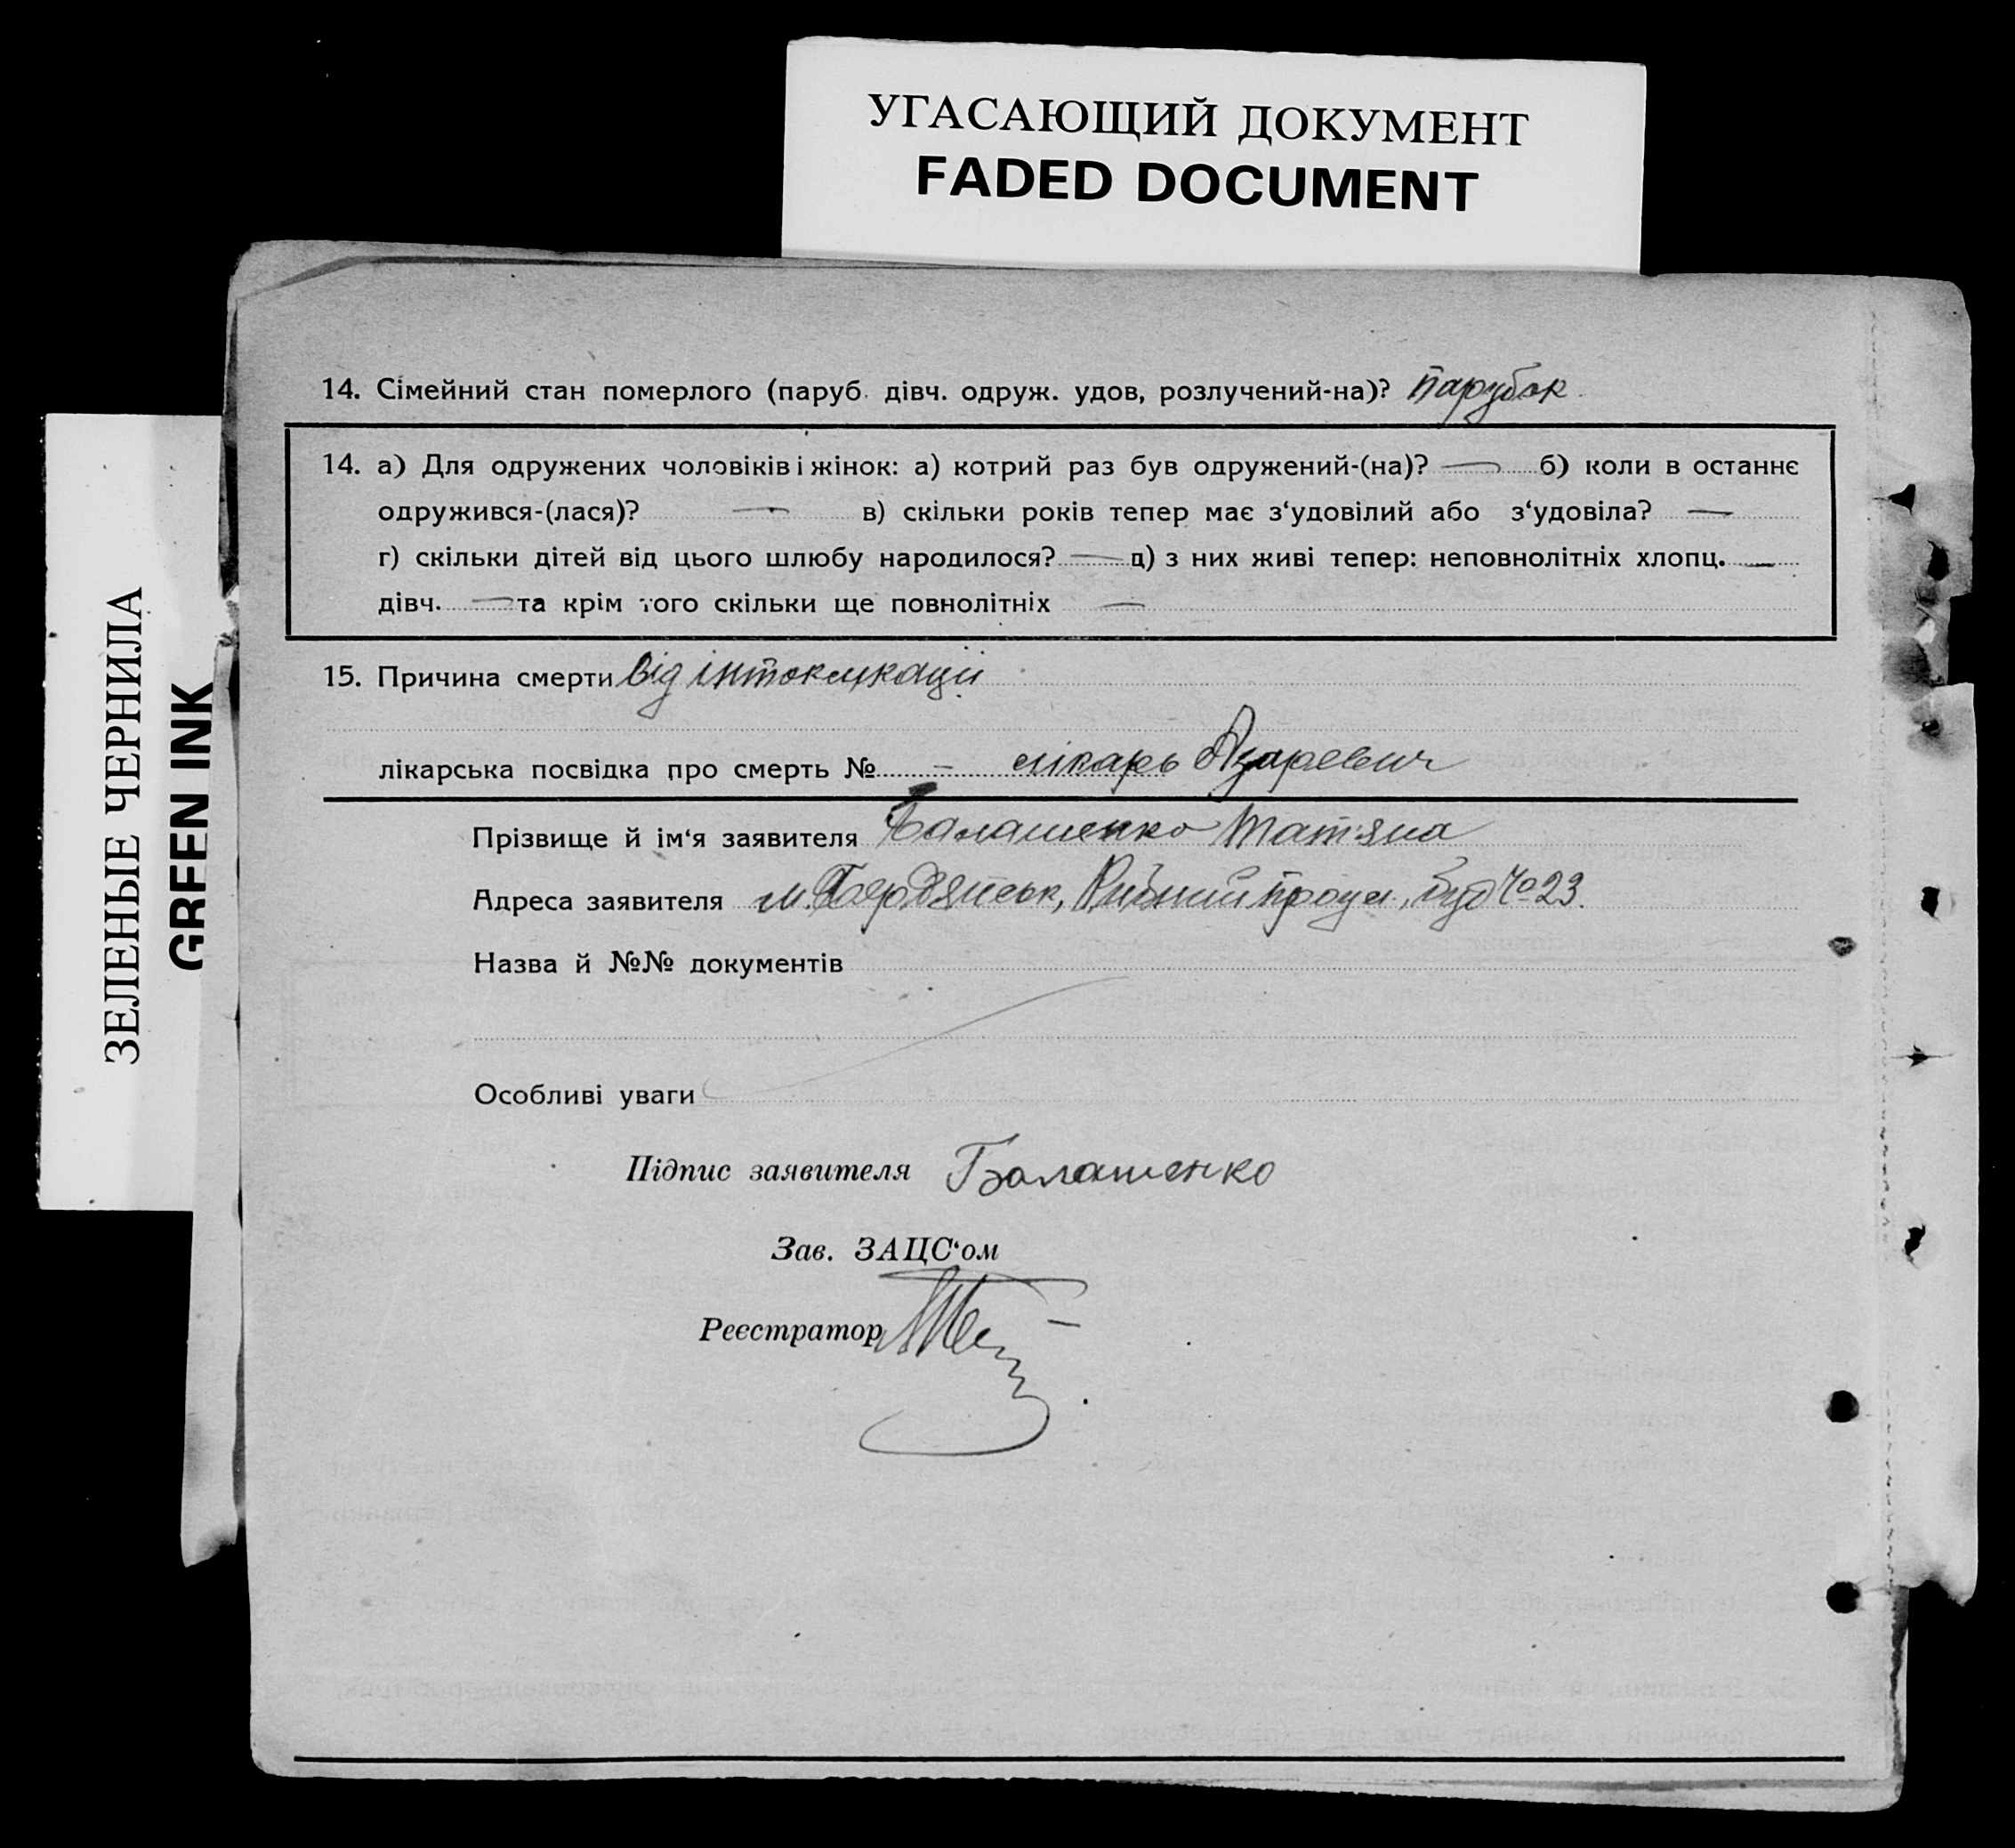 УГАСАЮЩИЙ ДОКУМЕНТ
FADED DOCUMENT
ЗЕЛЕНЫЕ ЧЕРНИЛА
GREEN INK
14. Сімейний стан померлого (паруб. дівч. одруж. удов, розлучений-на)? парубок
14. а) Для одружених чоловіків і жінок: а) котрий раз був одружений-(на)? — б) коли в останнє
одружився-(лася)? — в) скільки років тепер має з‘удовілий або з‘удовіла? —
г) скільки дітей від цього шлюбу народилося? — д) з них живі тепер: неповнолітніх хлопц. —
дівч. — та крім того скільки ще повнолітніх —
15. Причина смерти від інтоксикації
лікарська посвідка про смерть № – лікарь Азаревич
Прізвище й ім‘я заявителя Балашенко Татяна
Адреса заявителя м. Бердянськ, буд № 23.
Назва й №№ документів
Особливі уваги
Підпис заявителя Балашенко
Зав. ЗАЦС‘ом
Реєстратор